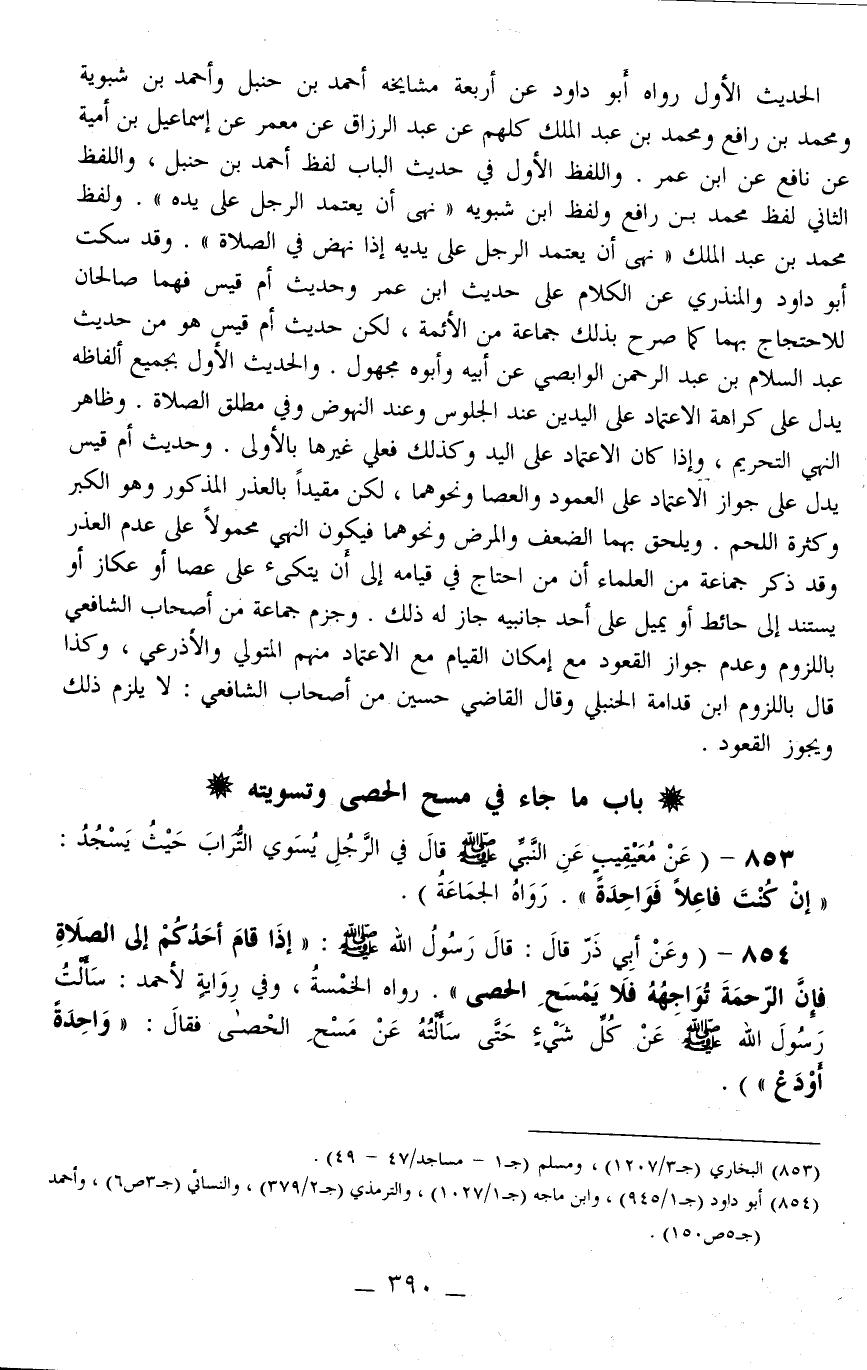 الحديث الأول رواه أَبو داود عن أربعة مشايخه أحمد بن حنبل وأحمد بن شبوية
ومحمد بن رافع ومحمد بن عبد الملك كلهم عن عبد الرزاق عن معمر عن إسماعيل بن أمية
عن نافع عن ابن عمر . واللفظ الأول في حديث الباب لفظ أحمد بن حنبل ، واللفظ
الثاني لفظ محمد بن رافع ولفظ ابن شبويه « نهى أن يعتمد الرجل على يده » . ولفظ
محمد بن عبد الملك « نهى أن يعتمد الرجل على يديه إذا نهض في الصلاة » . وقد سكت
أبو داود والمنذري عن الكلام على حديث ابن عمر وحديث أم قيس فهما صالحان
للاحتجاج بهما كما صرح بذلك جماعة من الأئمة ، لكن حديث أم قيس هو من حديث
عبد السلام بن عبد الرحمن الوابصي عن أبيه وأبوه مجهول . والحديث الأول بجميع ألفاظه
يدل على كراهة الاعتماد على اليدين عند الجلوس وعند النهوض وفي مطلق الصلاة . وظاهر
النهي التحريم ، وإذا كان الاعتماد على اليد وكذلك فعلي غيرها بالأولى . وحديث أم قيس
يدل على جواز الاعتماد على العمود والعصا ونحوهما ، لكن مقيداً بالعذر المذكور وهو الكبر
وكثرة اللحم . ويلحق بهما الضعف والمرض ونحوهما فيكون النهي محمولاً على عدم العذر
وقد ذكر جماعة من العلماء أن من احتاج في قيامه إلى أَن يتكىء على عصا أو عكاز أو
يستند إلى حائط أو يميل على أحد جانبيه جاز له ذلك . وجزم جماعة من أصحاب الشافعي
باللزوم وعدم جواز القعود مع إمكان القيام مع الاعتماد منهم المتولي والأذرعي ، وكذا
قال باللزوم ابن قدامة الحنبلي وقال القاضي حسين من أصحاب الشافعي : لا يلزم ذلك
ويجوز القعود .
✸ باب ما جاء في مسح الحصى وتسويته ✸
٨٥٣ – ( عَنْ مُعَيْقِيبٍ عَنِ النَّبِيِّ ﷺ قالَ في الرَّجُلِ يُسَوي التُّرَابَ حَيْثُ يَسْجُدُ :
« إنْ كُنْتَ فاعِلاً فَوَاحِدَةً » . رَوَاهُ الجَمَاعَةُ ) .
٨٥٤ – ( وعَنْ أبي ذَرّ قالَ : قالَ رَسُولُ الله ﷺ : « إذَا قامَ أحَدُكُمْ إلى الصلَاةِ
فإنَّ الرّحمَةَ تُوَاجِهُهُ فَلَا يَمْسَحِ الحصى » . رواه الخمْسةُ ، وفي رِوَايةٍ لأحمد : سَألْتُ
رَسُولَ الله ﷺ عَنْ كُلِّ شَيْءٍ حَتَّى سَألْتُهُ عَنْ مَسْحِ الحْصىٰ فقالَ : « وَاحِدَةً
أَوْدَعْ » ) .
(٨٥٣) البخاري (جـ٣/١٢٠٧) ، ومسلم (جـ١ – مساجد/٤٧ – ٤٩) .
(٨٥٤) أبو داود (جـ١/٩٤٥) ، وابن ماجه (جـ١/١٠٢٧) ، والترمذي (جـ٢/٣٧٩) ، والنسائي (جـ٣ص٦) ، وأحمد
(جـ٥ص١٥٠) .
– ٣٩٠ –